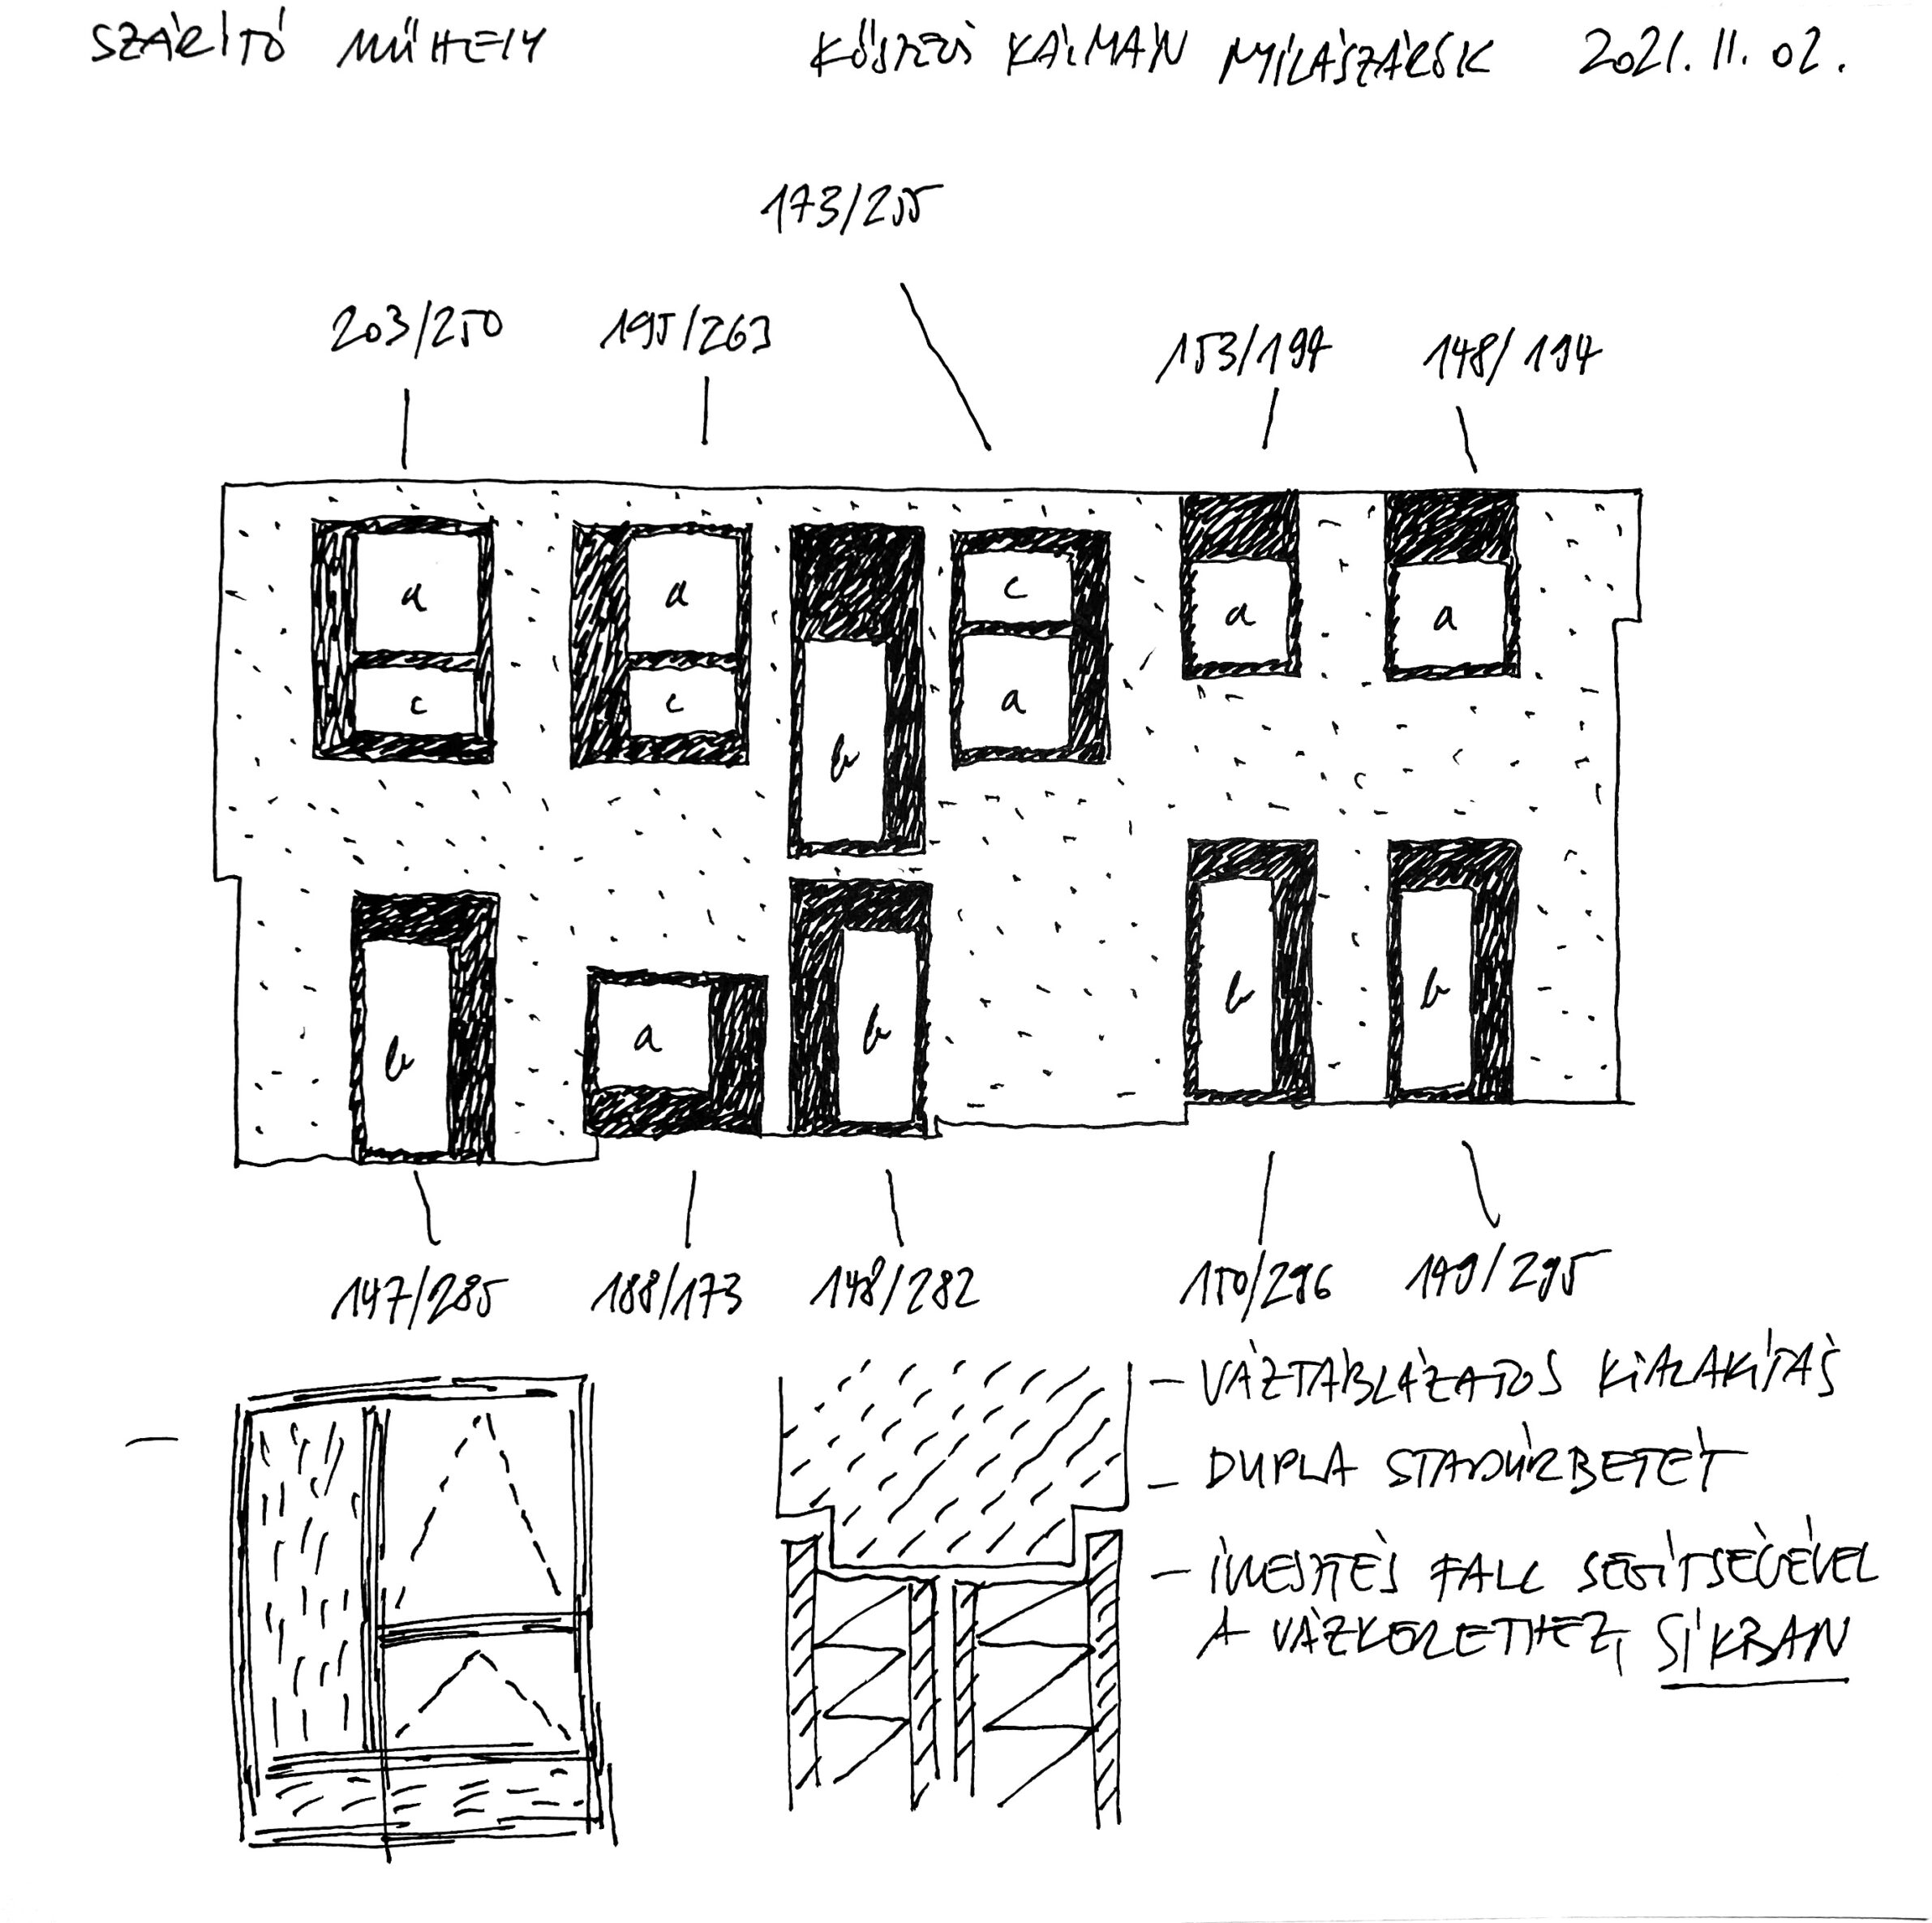 SZÁRÍTÓ MŰHELY
KŐSZEGI KÁLMÁN NYÍLÁSZÁRÓK 2021. 11. 02.
173/255
203/250 195/263 153/194 148/194
a a c a a
c c b a
b a b b b
147/285 188/173 148/282 150/296 149/295
– VÁZTÁBLÁZATOS KIALAKÍTÁS
– DUPLA STADURBETÉT
– ILLESZTÉS FALC SEGÍTSÉGÉVEL
A VÁZKERETHEZ, SÍKBAN